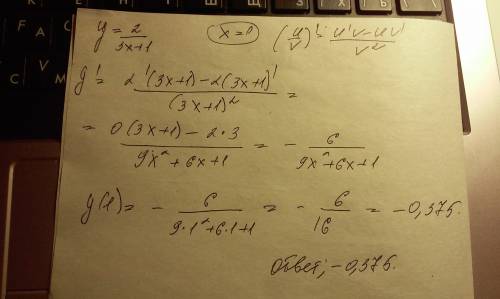 y = 2/(3x+1)   x=0   (u/v)' = (u'v-uv')/v²
y' = (2'(3x+1)-2(3x+1)')/(3x+1)² =
= (0(3x+1)-2·3)/(9x²+6x+1) = - 6/(9x²+6x+1)
y(1) = - 6/(9·1²+6·1+1) = - 6/16 = -0,375.
ответ: -0,375.